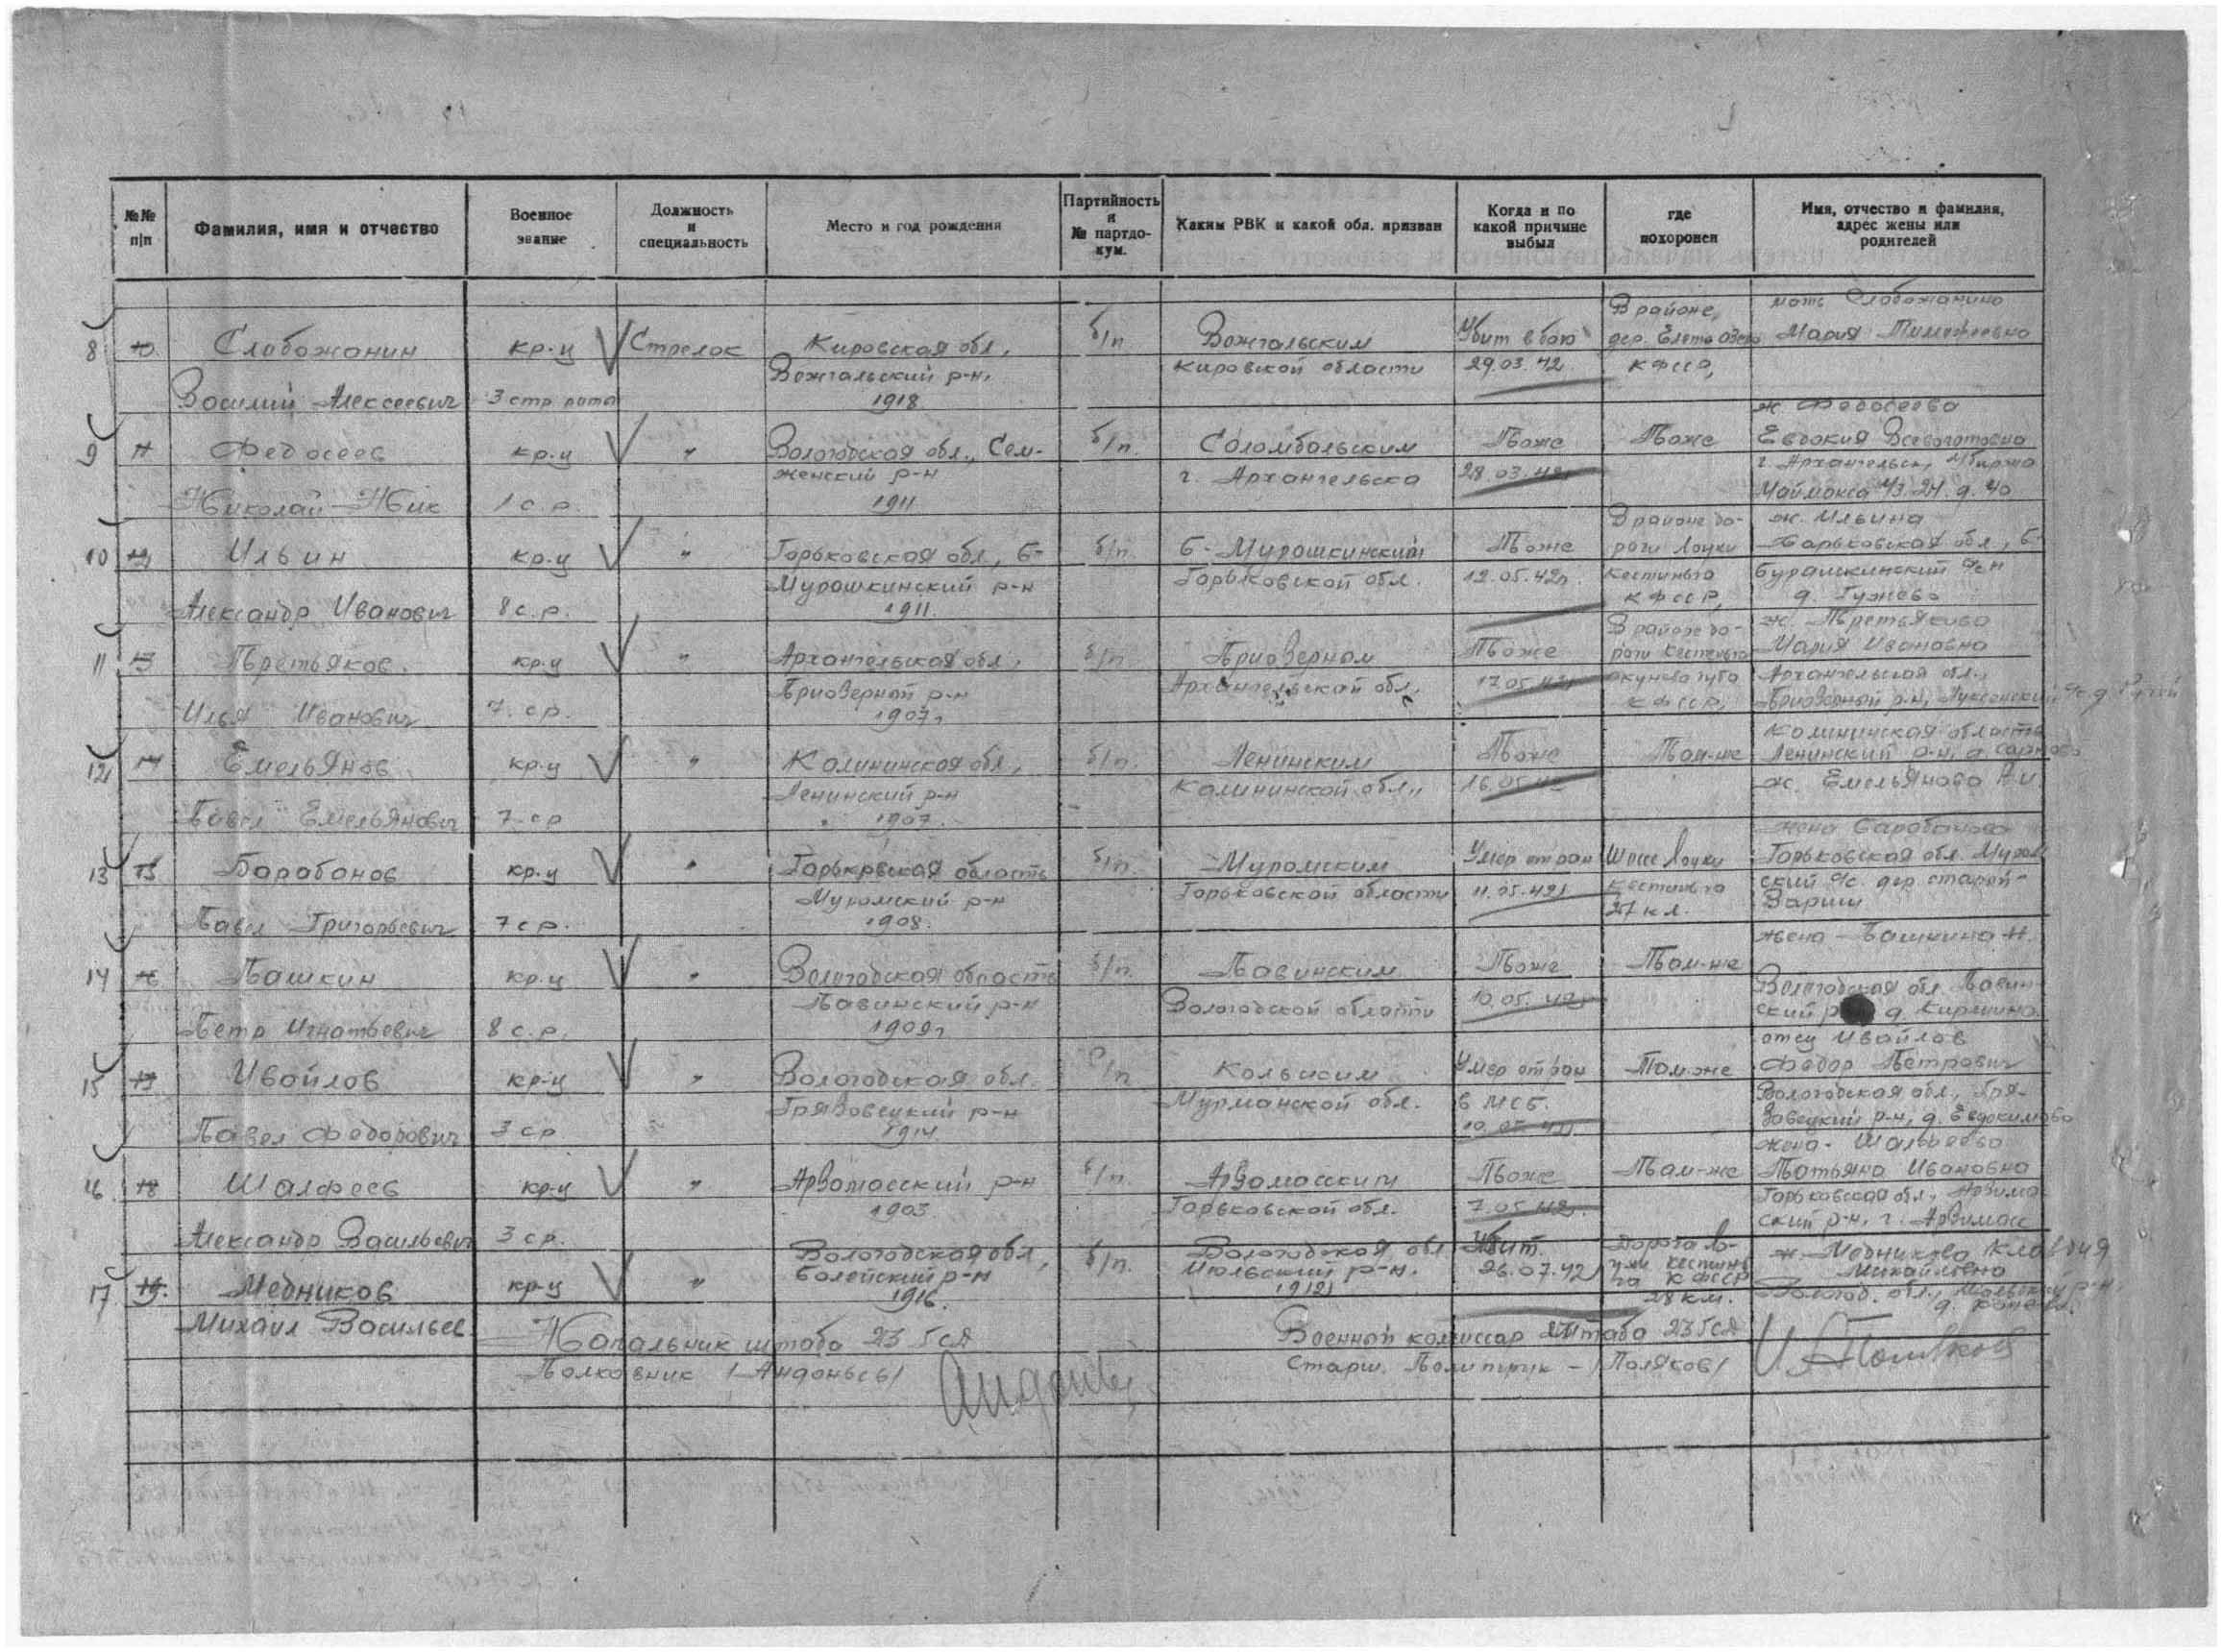 №№ п|п
Фамилия, имя и отчество
Военное звание
Должность и специальность
Место и год рождения
Партийность и № партдокум.
Каким РВК и какой обл. призван
Когда и по какой причине выбыл
где похоронен
Имя, отчество и фамилия, адрес жены или родителей
8
Слобожанин
Василий Алексеевич
кр-ц
3 стр. рота
Стрелок
Кировская обл,
Вожгальский р-н,
1918
б/п
Вожгальским
Кировской области
Убит в бою
29.03.42
В районе,
дер. Елеть озеро
КФССР,
мать Слобожанина
Мария Тимофеевна
9
11
Федосеев
Николай Ник
кр-ц
1 с р.
"
Вологодская обл., Сем-
женский р-н
1911
б/п.
Соломбальским
г. Архангельска
Тоже
28.03.42
Тоже
ж. Федосеева
Евдокия
г. Архангельск,
Маймакса 24. д. 40
10
12
Ильин
Александр Иванович
кр-ц
8 с.р.
"
Горьковская обл, Б-
Мурашкинский р-н
1911.
б/п.
Б-Мурашкинским
Горьковской обл.
Тоже
12.05.42г.
В районе до-
роги Лоухи
Кестеньга
КФССР,
ж. Ильина
Горьковская обл, Б-
д. Гужево
11
13
Третьяков.
Илья Иванович
кр-ц
7. ср.
"
Архангельская обл,
Приозерный р-н
1907г
б/п
Приозерном
Архангельской обл,
Тоже
17.05.42г
В районе до-
роги Кестеньга
Окунева губа
КФССР,
ж. Третьякова
Мария Ивановна
Архангельская обл.,
Приозерный р-н,
12
14
Емельянов
Павел Емельянович
кр-ц
7 ср
"
Калининская обл,
Ленинский р-н
1907.
б/п.
Ленинским
Калининской обл,
Тоже
16.05.42
Там-же
Калининская область
Ленинский р-н, д.
ж. Емельянова А И
13
15
Барабанов
Павел Григорьевич
кр-ц
7 ср.
"
Горьковская область
Муромский р-н
1908.
б/п.
Муромским
Горьковской области
Умер от ран
11.05.42г
Шоссе Лоухи
Кестеньга
27 кл.
жена Барабанова
Горьковская обл. Муром
ский с/с. дер. старой-
14
16
Пашкин
Петр Игнатьевич
кр-ц
8 с.р.
"
Вологодская область
Павинский р-н
1909г
б/п.
Павинским
Вологодской области
Тоже
10.05.42г
Там-же
жена - Пашкина Н.
Вологодская обл. Павин-
ский р д.
15
17
Ивойлов
Павел Федорович
кр-ц
3 ср
"
Вологодская обл.
Грязовецкий р-н
1914.
б/п
Кольским
Мурманской обл.
Умер от ран
в МСБ.
10.05.42
Там же
отец Ивойлов
Федор Петрович
Вологодская обл., Гря-
зовецкий р-н, д. Евдокимово
16
18
Шалфеев
Александр Васильевич
кр-ц
3 ср.
"
Арзамасский р-н
1903.
б/п.
Арзамасским
Горьковской обл.
Тоже
7.05.42г.
Там-же
жена - Шалфеева
Татьяна Ивановна
Горьковская обл., Арзама
ский р-н, г. Арзамас
17
19.
Медников
Михаил Васильев
кр-ц
"
Вологодская обл,
р-н
1916.
б/п.
Вологодской обл
р-н.
Убит.
26.07.42г
Дорога Ло-
ухи Кестень
га КФССР
28 км.
ж. Медникова Клавдия
Михайловна
Волог. обл.,
Начальник штаба 23 ГСД
Полковник /Андоньев/
Военный комиссар штаба 23 ГСД
Старш. Политрук - /Поляков/